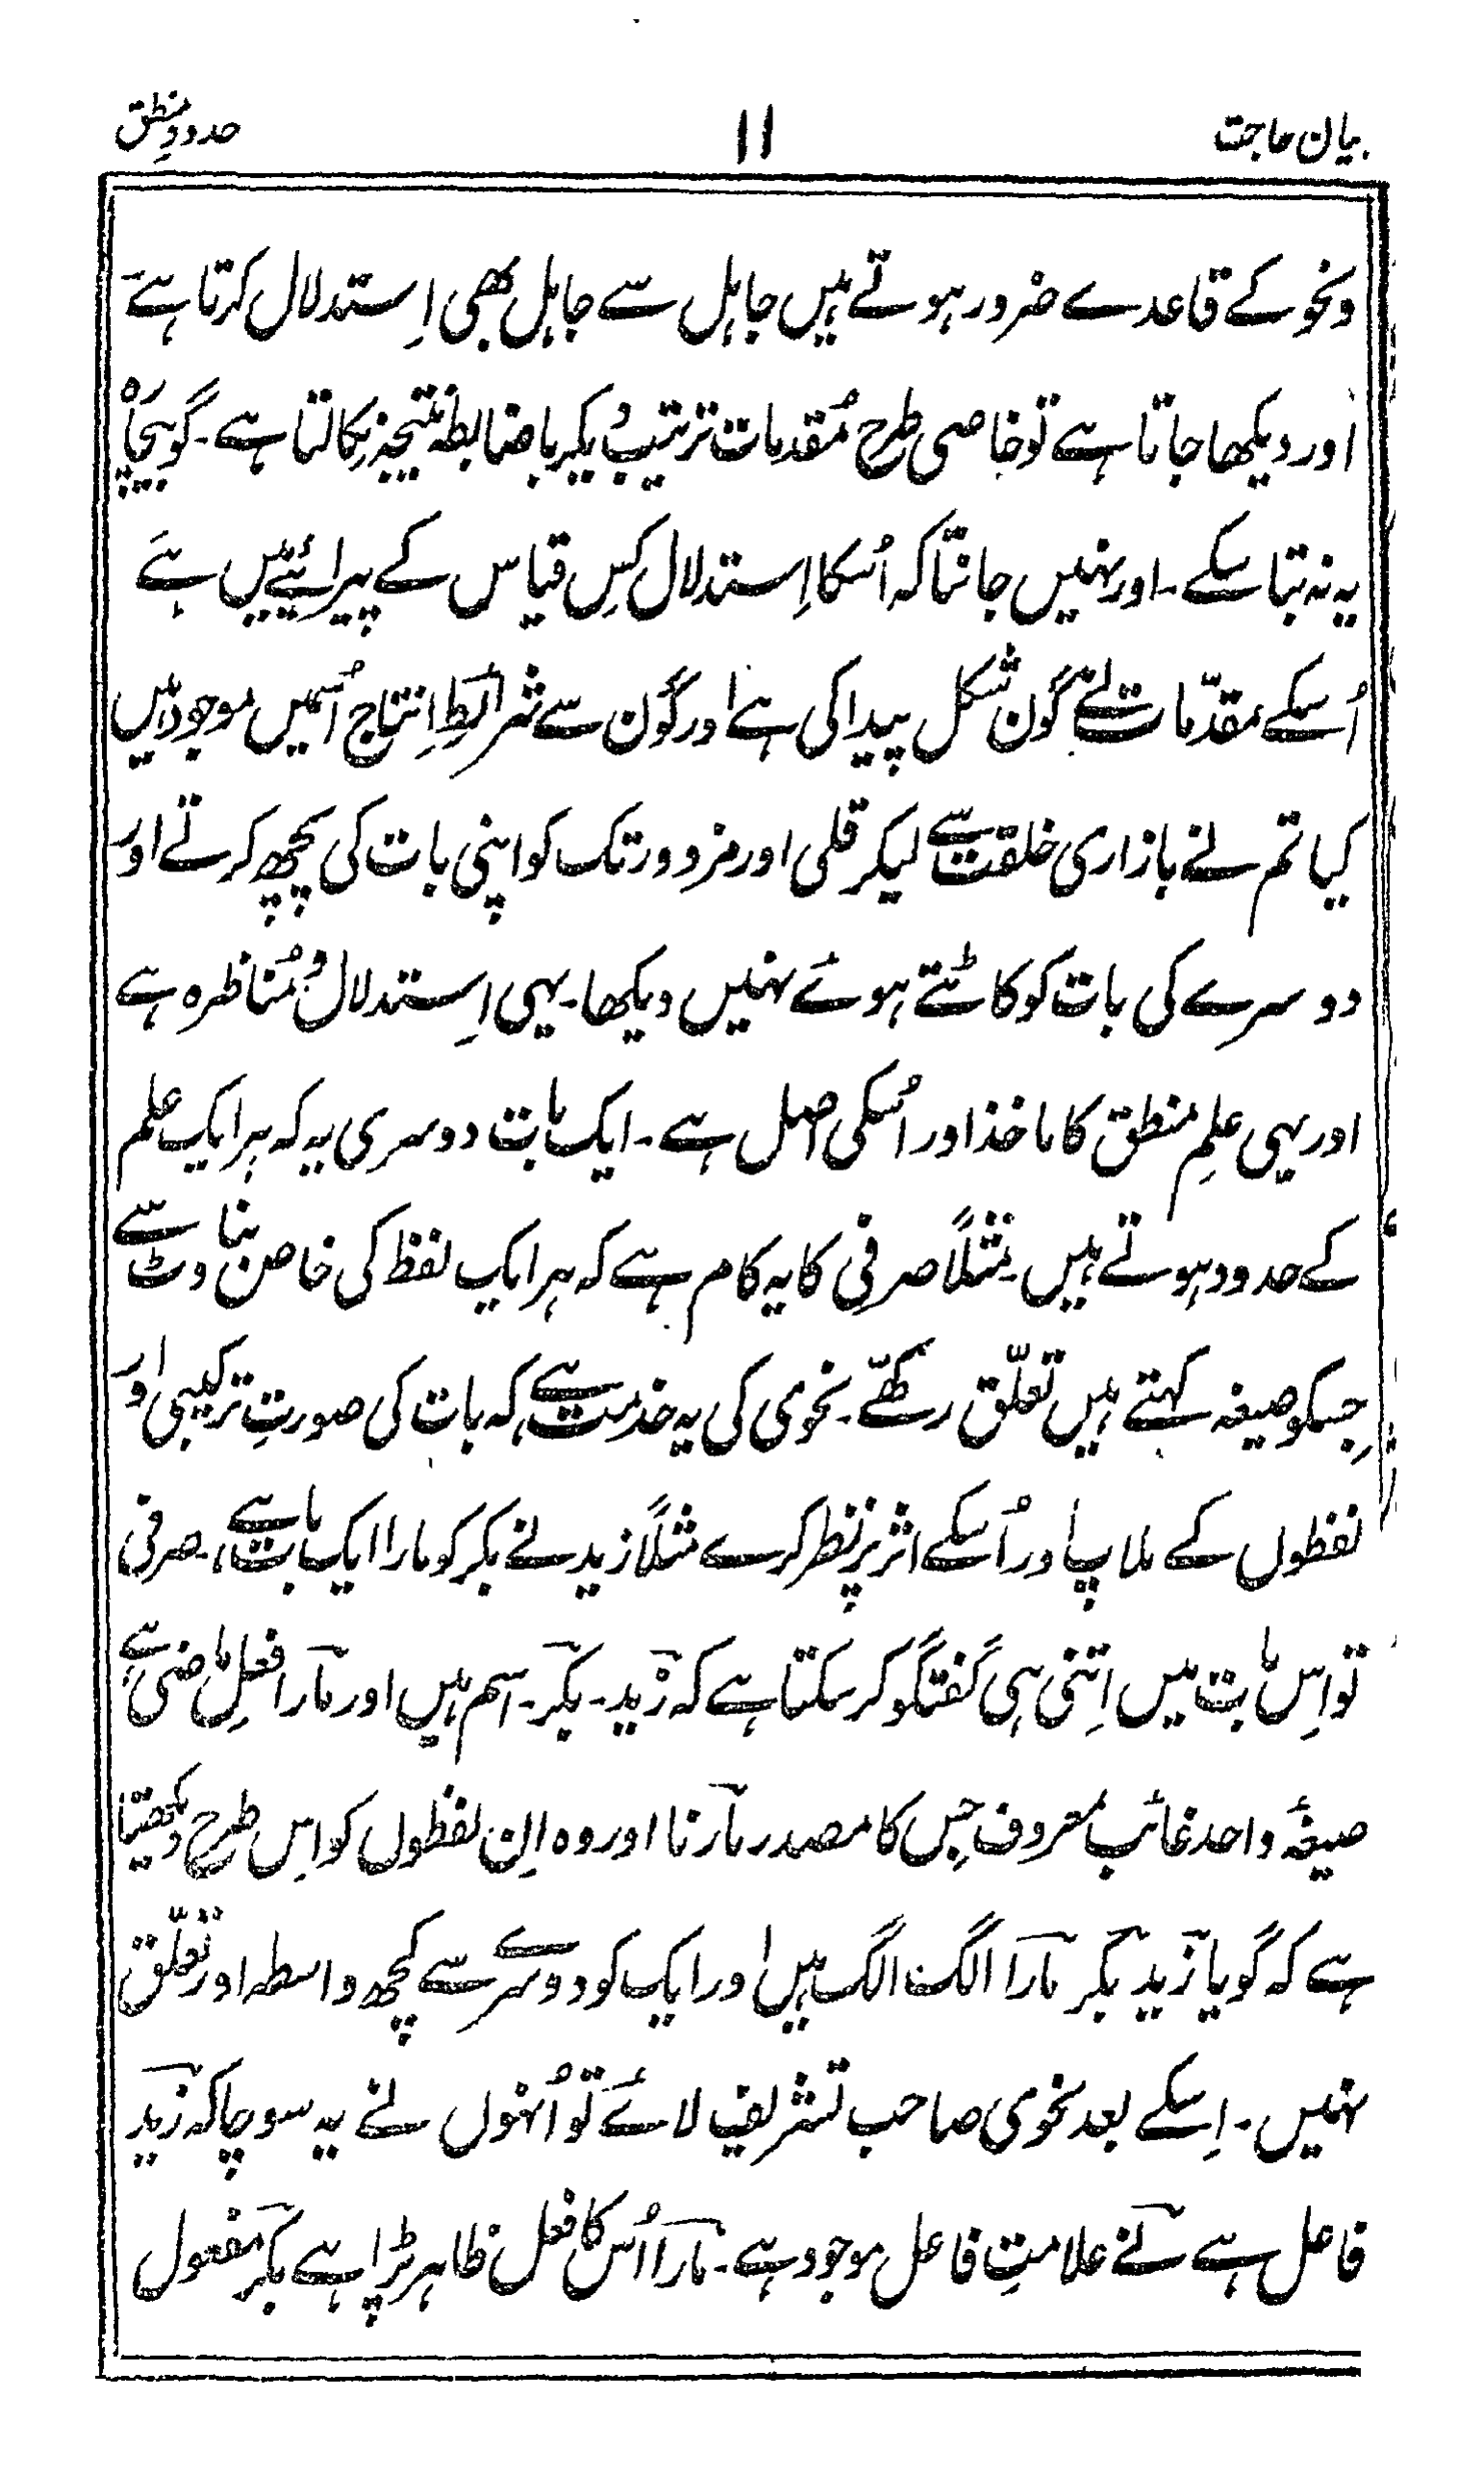 بیان حاجت
۱۱
حدودِ منطق
ونحو کے قاعدے ضرور ہوتے ہیں جاہل سے جاہل بھی اِستدلال کرتا ہے
اور دیکھا جاتا ہے تو خاصی طرح مُقدمات ترتیب دیکر باضابطہ نتیجہ نِکالتا ہے۔ گو بیچارہ
یہ نہ بتا سکے۔ اور نہیں جانتا کہ اُسکا اِستدلال کِس قیاس کے پیرائیے میں ہے
اُسکے مقدّمات نے کون شکل پیدا کی ہے اور کون سے شرائطِ اِنتاج اُسمیں موجود ہیں
کیا تم نے بازاری خلقت سے لیکر قلی اور مزدور تک کو اپنی بات کی پچھ کرتے اور
دوسرے کی بات کو کاٹتے ہوئے نہیں دیکھا۔ یہی اِستدلال و مُناظرہ ہے
اور یہی علمِ منطق کا ماخذ اور اُسکی اصل ہے۔ ایک بات دوسری یہ کہ ہر ایک علم
کے حدود ہوتے ہیں۔ مثلاً صرفی کا یہ کام ہے کہ ہر ایک لفظ کی خاص بناوٹ سے
جِسکو صیغہ کہتے ہیں تعلّق رکھّے۔ نحوی کی یہ خدمت ہے کہ بات کی صورتِ ترکیبی اور
لفظوں کے ملاپ اور اُسکے اثر پر نظر کرے مثلاً زید نے بکر کو مارا ایک بات ہے، صرفی
تو اِس بات میں اِتنی ہی گفتگو کر سکتا ہے کہ زید۔ بکر۔ اسم ہیں اور مارا فعلِ ماضی ہے
صیغۂ واحد غائب معروف جِس کا مصدر مارنا اور وہ اِن لفظوں کو اِس طرح دیکھتا
ہے کہ گویا زید بکر مارا الگ الگ ہیں اور ایک کو دوسرے سے کچھ واسطہ اور تعلّق
نہیں۔ اِسکے بعد نحوی صاحب تشریف لائے تو اُنہوں نے یہ سوچا کہ زید
فاعل ہے نے علامتِ فاعل موجود ہے۔ مارا اُس کا فعل ظاہر پڑا ہے بکر مفعول